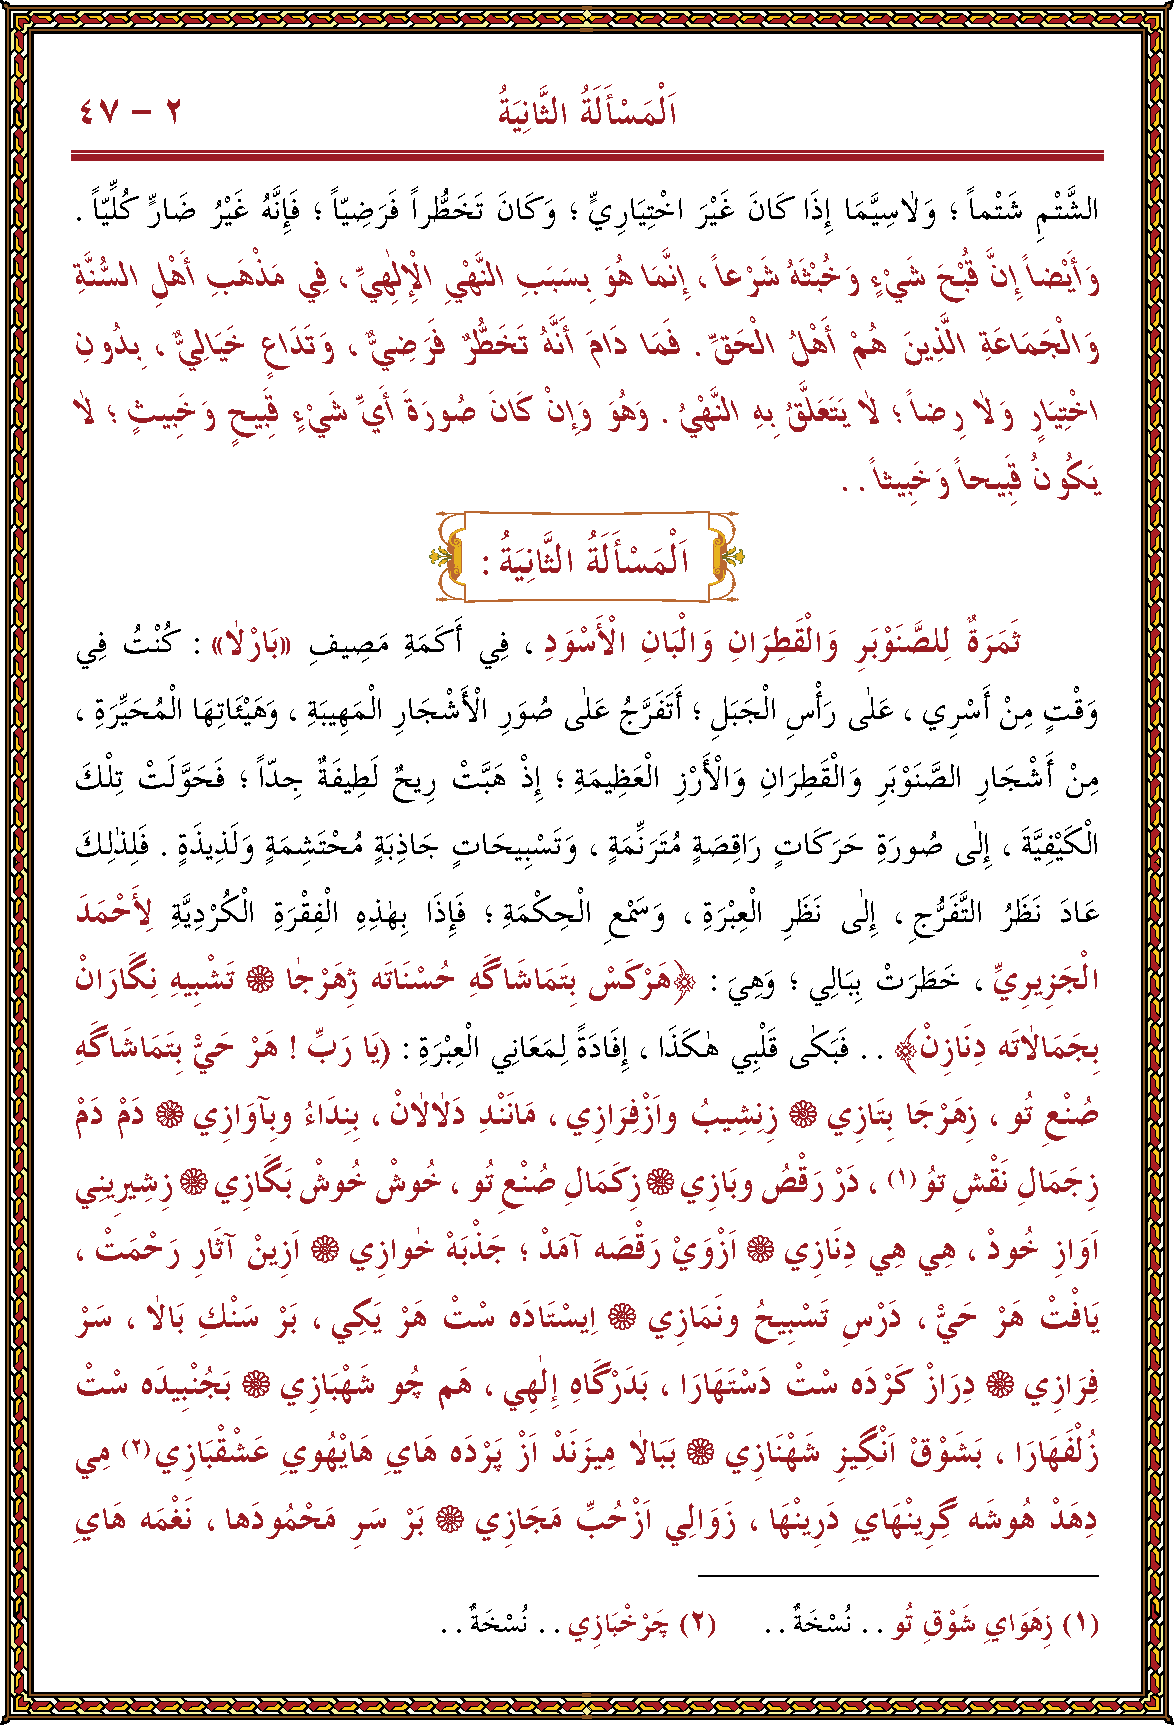 اَلْمَسْأَلَةُ الثَّانِيَةُ ٢ – ٤٧
الشَّتْمِ شَتْماً ؛ وَلاٰسِيَّمَا إِذَا كَانَ غَيْرَ اخْتِيَارِيٍّ ؛ وَكَانَ تَخَطُّراً فَرَضِيّاً ؛ فَإِنَّهُ غَيْرُ ضَارٍّ كُلِّيّاً .
وَأَيْضاً إِنَّ قُبْحَ شَيْءٍ وَخُبْثَهُ شَرْعاً ، إِنَّمَا هُوَ بِسَبَبِ النَّهْيِ الْإِلٰهِيِّ ، فِي مَذْهَبِ أَهْلِ السُّنَّةِ
وَالْجَمَاعَةِ الَّذِينَ هُمْ أَهْلُ الْحَقِّ . فَمَا دَامَ أَنَّهُ تَخَطُّرٌ فَرَضِيٌّ ، وَتَدَاعٍ خَيَالِيٌّ ، بِدُونِ
اخْتِيَارٍ وَلاٰ رِضاً ؛ لاٰ يَتَعَلَّقُ بِهِ النَّهْيُ . وَهُوَ وَإِنْ كَانَ صُورَةَ أَيِّ شَيْءٍ قَبِيحٍ وَخَبِيثٍ ؛ لاٰ
يَكُونُ قَبِيحاً وَخَبِيثاً . .
اَلْمَسْأَلَةُ الثَّانِيَةُ :
ثَمَرَةٌ لِلصَّنَوْبَرِ وَالْقَطِرَانِ وَالْبَانِ الْأَسْوَدِ ، فِي أَكَمَةِ مَصِيفِ «بَارْلاٰ» : كُنْتُ فِي
وَقْتٍ مِنْ أَسْرِي ، عَلٰى رَأْسِ الْجَبَلِ ؛ أَتَفَرَّجُ عَلٰى صُوَرِ الْأَشْجَارِ الْمَهِيبَةِ ، وَهَيْئَاتِهَا الْمُحَيِّرَةِ ،
مِنْ أَشْجَارِ الصَّنَوْبَرِ وَالْقَطِرَانِ وَالْأَرْزِ الْعَظِيمَةِ ؛ إِذْ هَبَّتْ رِيحٌ لَطِيفَةٌ جِدّاً ؛ فَحَوَّلَتْ تِلْكَ
الْكَيْفِيَّةَ ، إِلٰى صُورَةِ حَرَكَاتٍ رَاقِصَةٍ مُتَرَنِّمَةٍ ، وَتَسْبِيحَاتٍ جَاذِبَةٍ مُحْتَشِمَةٍ وَلَذِيذَةٍ . فَلِذٰلِكَ
عَادَ نَظَرُ التَّفَرُّجِ ، إِلٰى نَظَرِ الْعِبْرَةِ ، وَسَمْعِ الْحِكْمَةِ ؛ فَإِذَا بِهٰذِهِ الْفِقْرَةِ الْكُرْدِيَّةِ لِأَحْمَدَ
الْجَزِيرِيِّ ، خَطَرَتْ بِبَالِي ؛ وَهِيَ : ﴿هَرْكَسْ بِتَمَاشَاگَهِ حُسْنَاتَه ژِهَرْجٰا ۞ تَشْبِيهِ نِگَارَانْ
بِجَمَالاٰتَه دِنَازِنْ﴾ . . فَبَكٰى قَلْبِي هٰكَذَا ، إِفَادَةً لِمَعَانِي الْعِبْرَةِ : (يَا رَبِّ ! هَرْ حَيّْ بِتَمَاشَاگَهِ
صُنْعِ تُو ، زِهَرْجَا بِتَازِي ۞ زِنِشِيبُ واَزْفِرَازِي ، مَانَنْدِ دَلاٰلاٰنْ ، بِنِدَاءُ وبِآوَازِي ۞ دَمْ دَمْ
زِجَمَالِ نَقْشِ تُوُ (١) ، دَرْ رَقْصُ وبَازِي ۞ زِكَمَالِ صُنْعِ تُو ، خُوشْ خُوشْ بَگَازِي ۞ زِشِيرِينِي
اَوَازِ خُودْ ، هِي هِي دِنَازِي ۞ اَزْوَيْ رَقْصَه آمَدْ ؛ جَذْبَهْ خٰوازِي ۞ اَزِينْ آثَارِ رَحْمَتْ ،
يَافْتْ هَرْ حَيّْ ، دَرْسِ تَسْبِيحُ ونَمَازِي ۞ اِيسْتَادَه سْتْ هَرْ يَكِي ، بَرْ سَنْكِ بَالاٰ ، سَرْ
فِرَازِي ۞ دِرَازْ كَرْدَه سْتْ دَسْتَهَارَا ، بَدَرْگَاهِ إِلٰهِي ، هَم چُو شَهْبَازِي ۞ بَجُنْبِيدَه سْتْ
زُلْفَهَارَا ، بَشَوْقْ اَنْگِيزِ شَهْنَازِي ۞ بَبَالاٰ مِيزَنَدْ اَزْ پَرْدَه هَايِ هَايْهُويِ عَشْقْبَازِي (٢) مِي
دِهَدْ هُوشَه گِرِينْهَايِ دَرِينْهَا ، زَوَالِي اَزْحُبِّ مَجَازِي ۞ بَرْ سَرِ مَحْمُودها ، نَغْمَه هَايِ
(١) زِهَوَايِ شَوْقِ تُو . . نُسْخَةٌ . . (٢) چَرْخْبَازِي . . نُسْخَةٌ . .